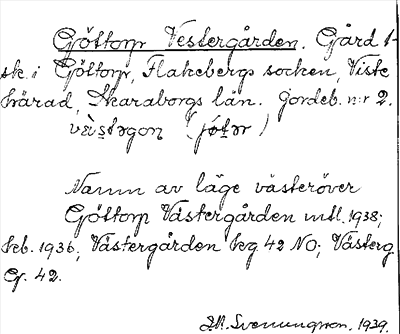 Göttorp Vestergården. Gård 1-
sk. i Göttorp, Flakebergs socken, Viste
härad, Skaraborgs län. Jordeb. n:r 2.
Namn av läge västeröver
Göttorp Västergården mtl. 1938;
Feb. 1936, Västergården Seg 42 NO; Västerg
G. 42.
1939.